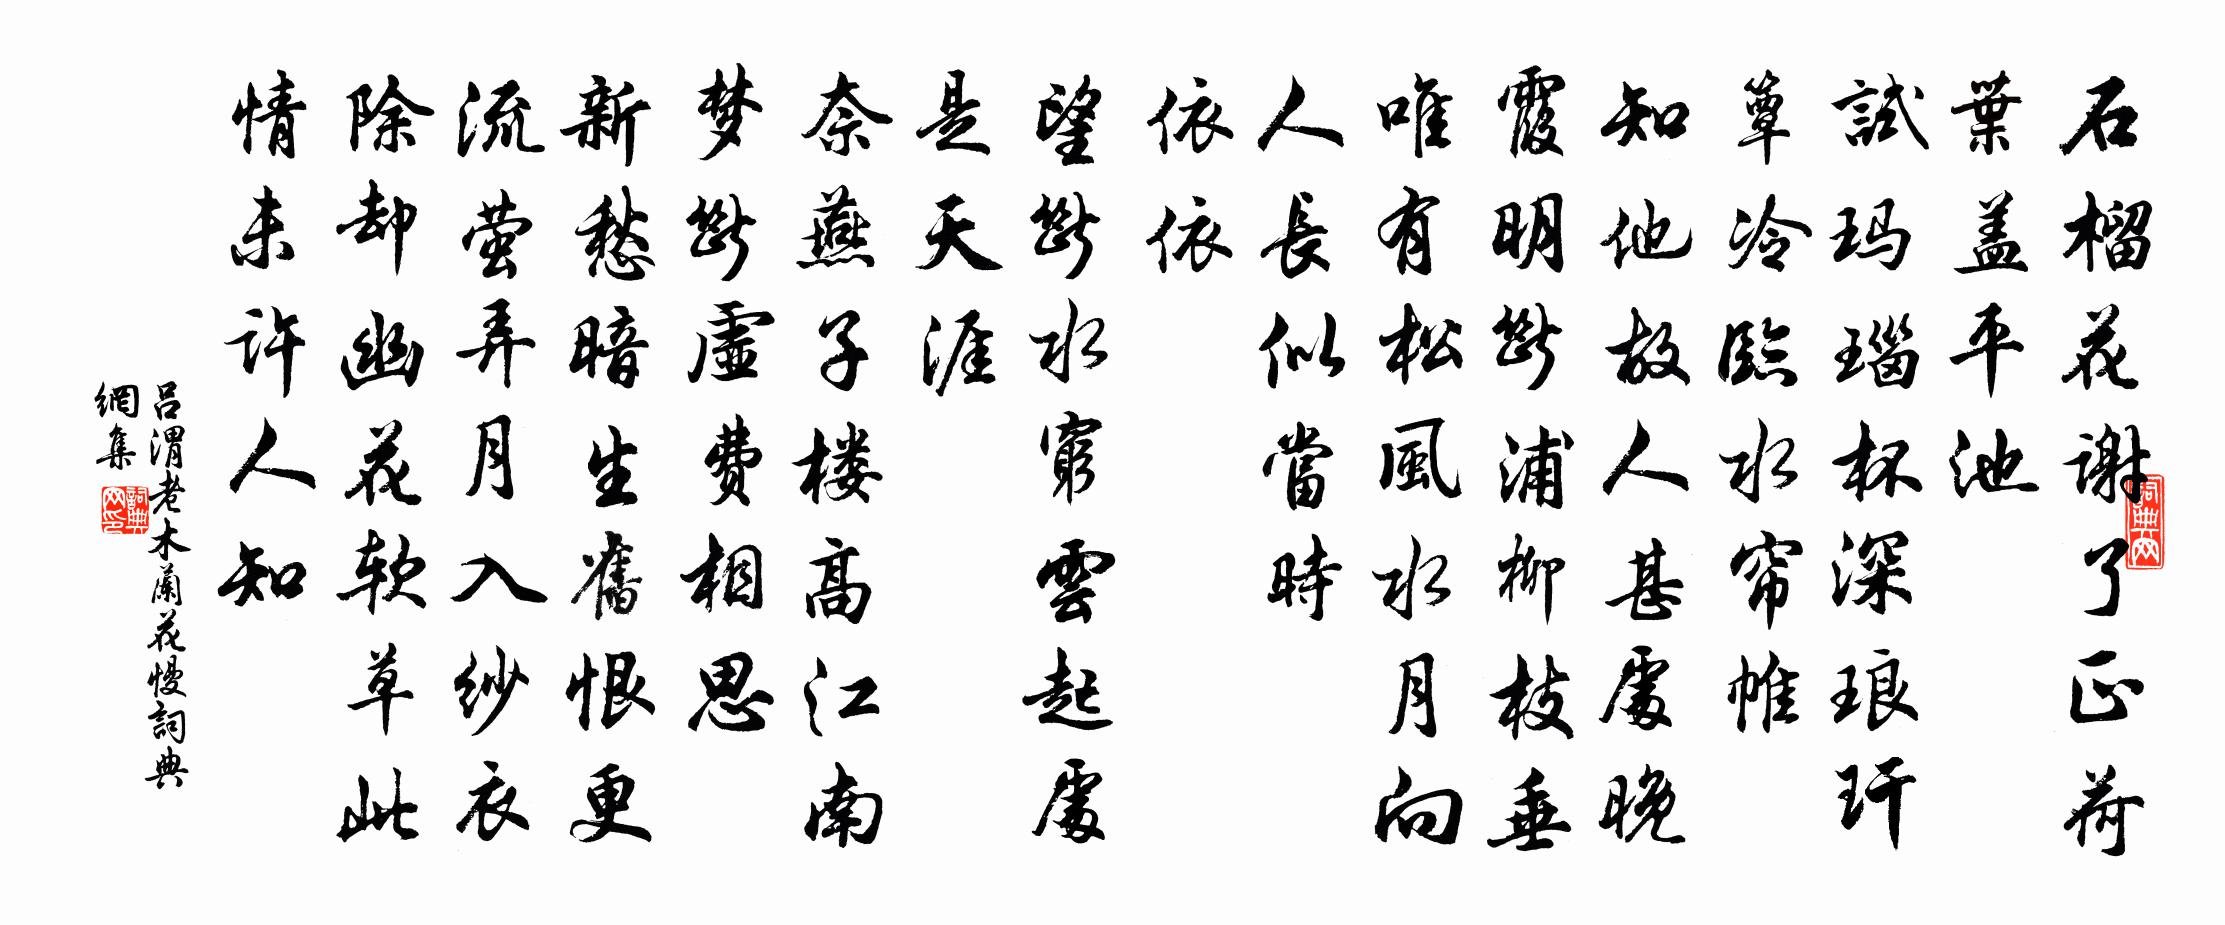 石榴花谢了正荷
葉盖平池
試玛瑙杯深琅玕
簟冷臨水帘帷
知他故人甚處晚
霞明斷浦柳枝垂
唯有松風水月向
人長似當時
依依
望斷水窮雲起處
是天涯
奈燕子楼高江南
梦斷虛費相思
新愁暗生舊恨更
流萤弄月入纱衣
除却幽花软草此
情未许人知
吕渭老木蘭花慢詞典
網集
詞典网
詞典网印